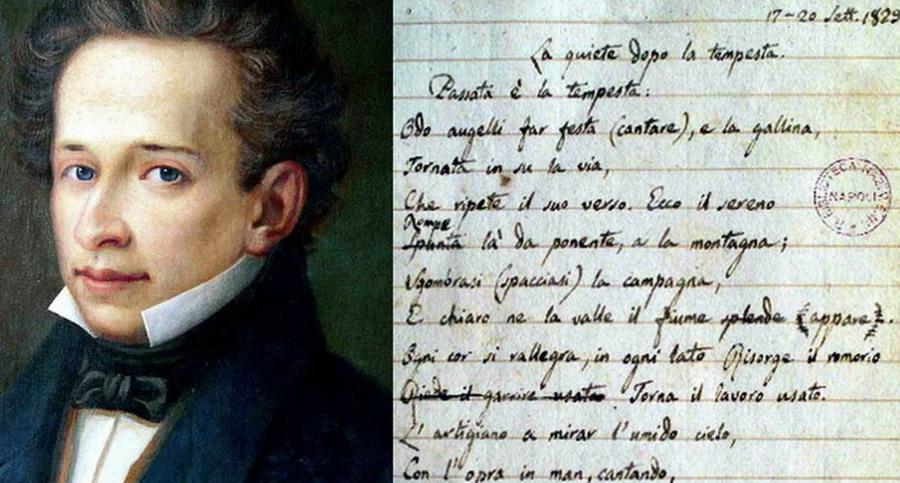 17-20 Sett. 1829
La quiete dopo la tempesta.
Passata è la tempesta:
Odo augelli far festa (cantare), e la gallina,
Tornata in su la via,
Che ripete il suo verso. Ecco il sereno
Rompe
Spunta là da ponente, a la montagna;
Sgombrasi (spacciasi) la campagna,
E chiaro ne la valle il fiume splende (appare).
Ogni cor si rallegra, in ogni lato Risorge il romorio
Riede il garrire usato Torna il lavoro usato.
L'artigiano a mirar l'umido cielo,
Con l'opra in man, cantando,
NAPOLI